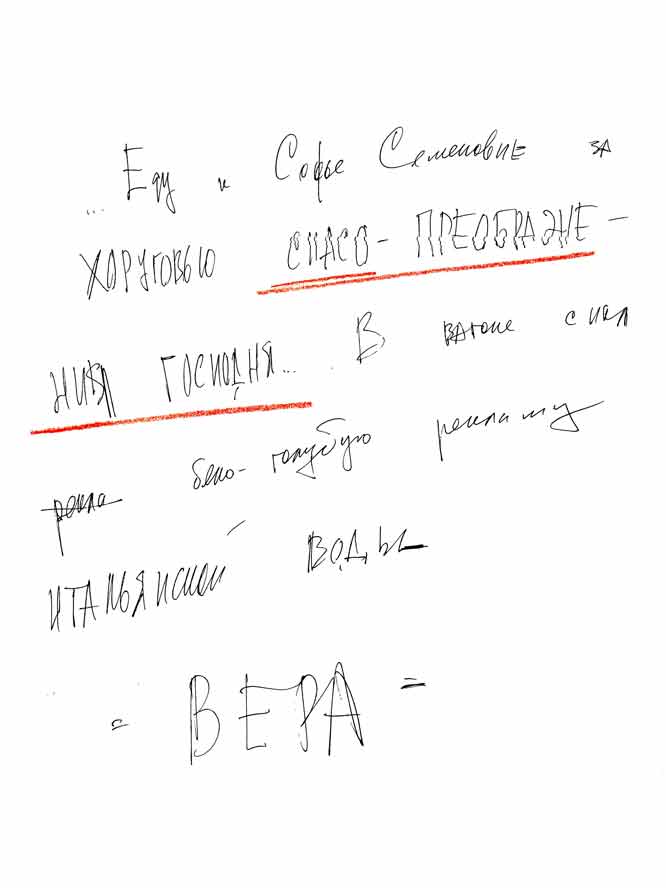 ... Еду к Софье Семеновне за
хоруговью СПАСО-ПРЕОБРАЖЕ-
НИЯ ГОСПОДНЯ... В вагоне снял
рекла бело-голубую рекламу
ИТАЛЬЯНСКОЙ ВОДЫ
= ВЕРА =